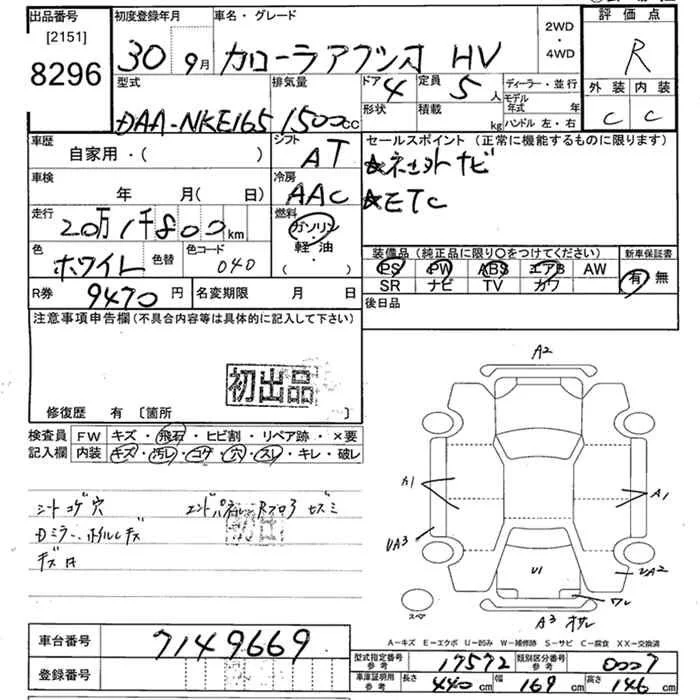 出品番号
[2151]
8296
初度登録年月
30 9月
車名・グレード
カローラアクシオ HV
2WD
・
4WD
評価点
R
外装 内装
C C
型式
DAA-NKE165
排気量
1500cc
ドア 4
形状
定員 5人
積載 kg
ディーラー・並行
モデル年式 年
ハンドル 左・右
車歴
自家用・( )
シフト
AT
車検
年 月( 日)
冷房
AAC
走行
20万1千800km
燃料
ガソリン
軽・油
色
ホワイト
色替
色コード
040
R券 9470円
名変期限 月 日
セールスポイント (正常に機能するものに限ります)
★ ナビ
★ETC
装備品 (純正品に限り○をつけてください)
PS PW ABS エアB AW
SR ナビ TV カワ
新車保証書
有 無
後日品
注意事項申告欄 (不具合内容等は具体的に記入して下さい)
初出品
修復歴 有 〔箇所 〕
検査員記入欄
FW キズ・飛石・ヒビ割・リペア跡・×要
内装 キズ・汚レ・コゲ・穴・スレ・キレ・破レ
シートコゲ穴
Dミラー、ホイルキズ
キズ
エンドパネル
A2
A1
UA3
UA2
U1
ワレ
A3
スペア
A-キズ E-エクボ U-凹み W-補修跡 S-サビ C-腐食 XX-交換済
車台番号 7149669
登録番号
型式指定番号 参考 17572
類別区分番号 参考 0007
車庫証明用 参考 長さ 440cm 幅 169cm 高さ 146cm